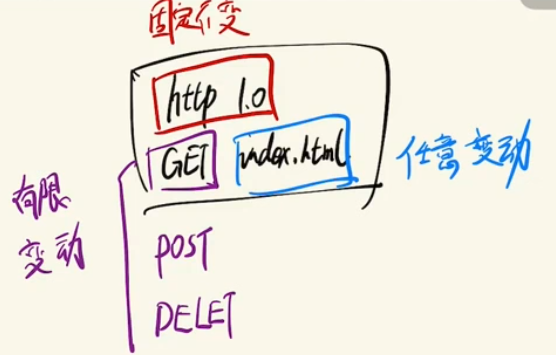 固定不变
http 1.0
GET index.html
任意变动
有限
变动
POST
DELET